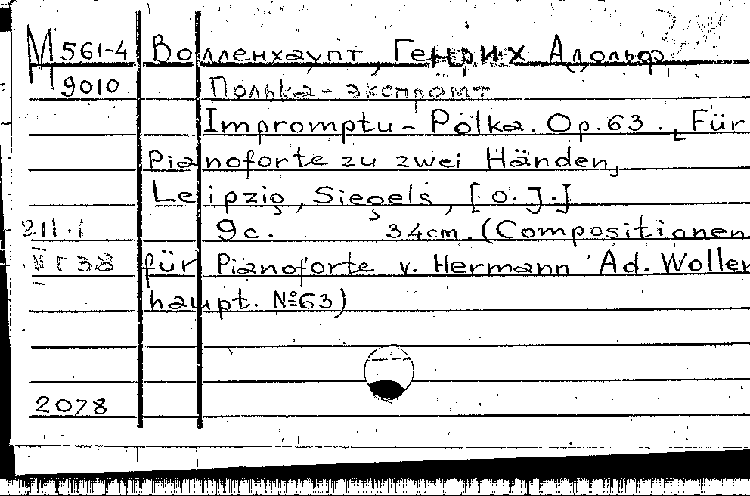 М 561-4 Волленхаупт, Генрих Адольф
9010 Полька-экспромт
Impromptu-Polka. Op.63. Für
Pianoforte zu zwei Händen,
Leipzig, Siegels, [o. J.]
9c. 34cm. (Compositionen
für Pianoforte v. Hermann Ad. Wollen
haupt. №63)
2078